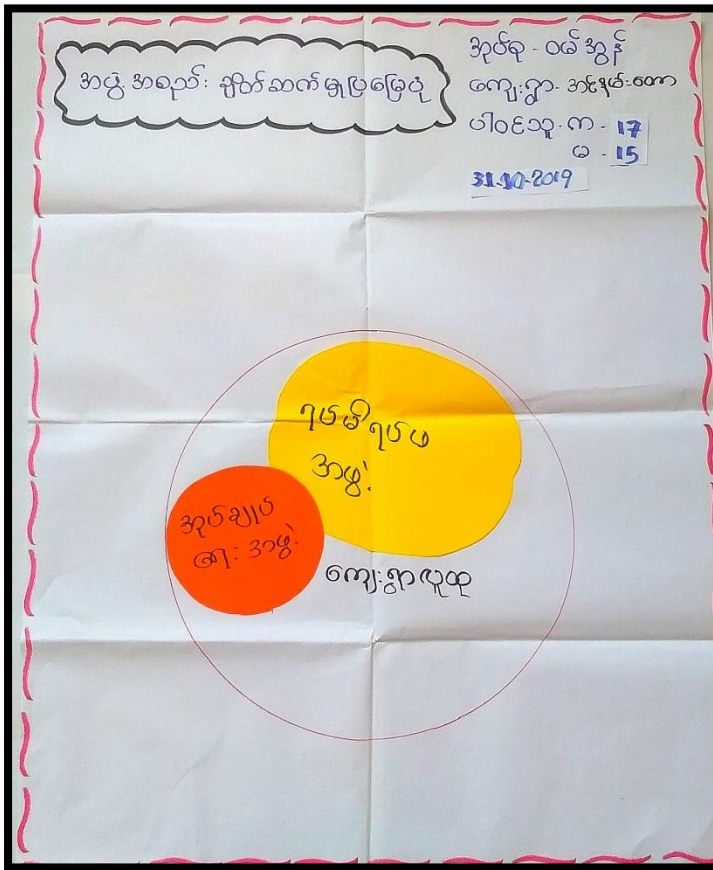 အဖွဲ့အစည်း ချိတ်ဆက်မှုပြမြေပုံ
အုပ်စု - ဝမ်အွန်
ကျေးရွာ - အင်နမ်းတော
ပါဝင်သူ - က - 17
မ - 15
31-10-2019
ရပ်မိရပ်ဖ
အဖွဲ့
အုပ်ချုပ်
ရေး အဖွဲ့
ကျေးရွာလူထု